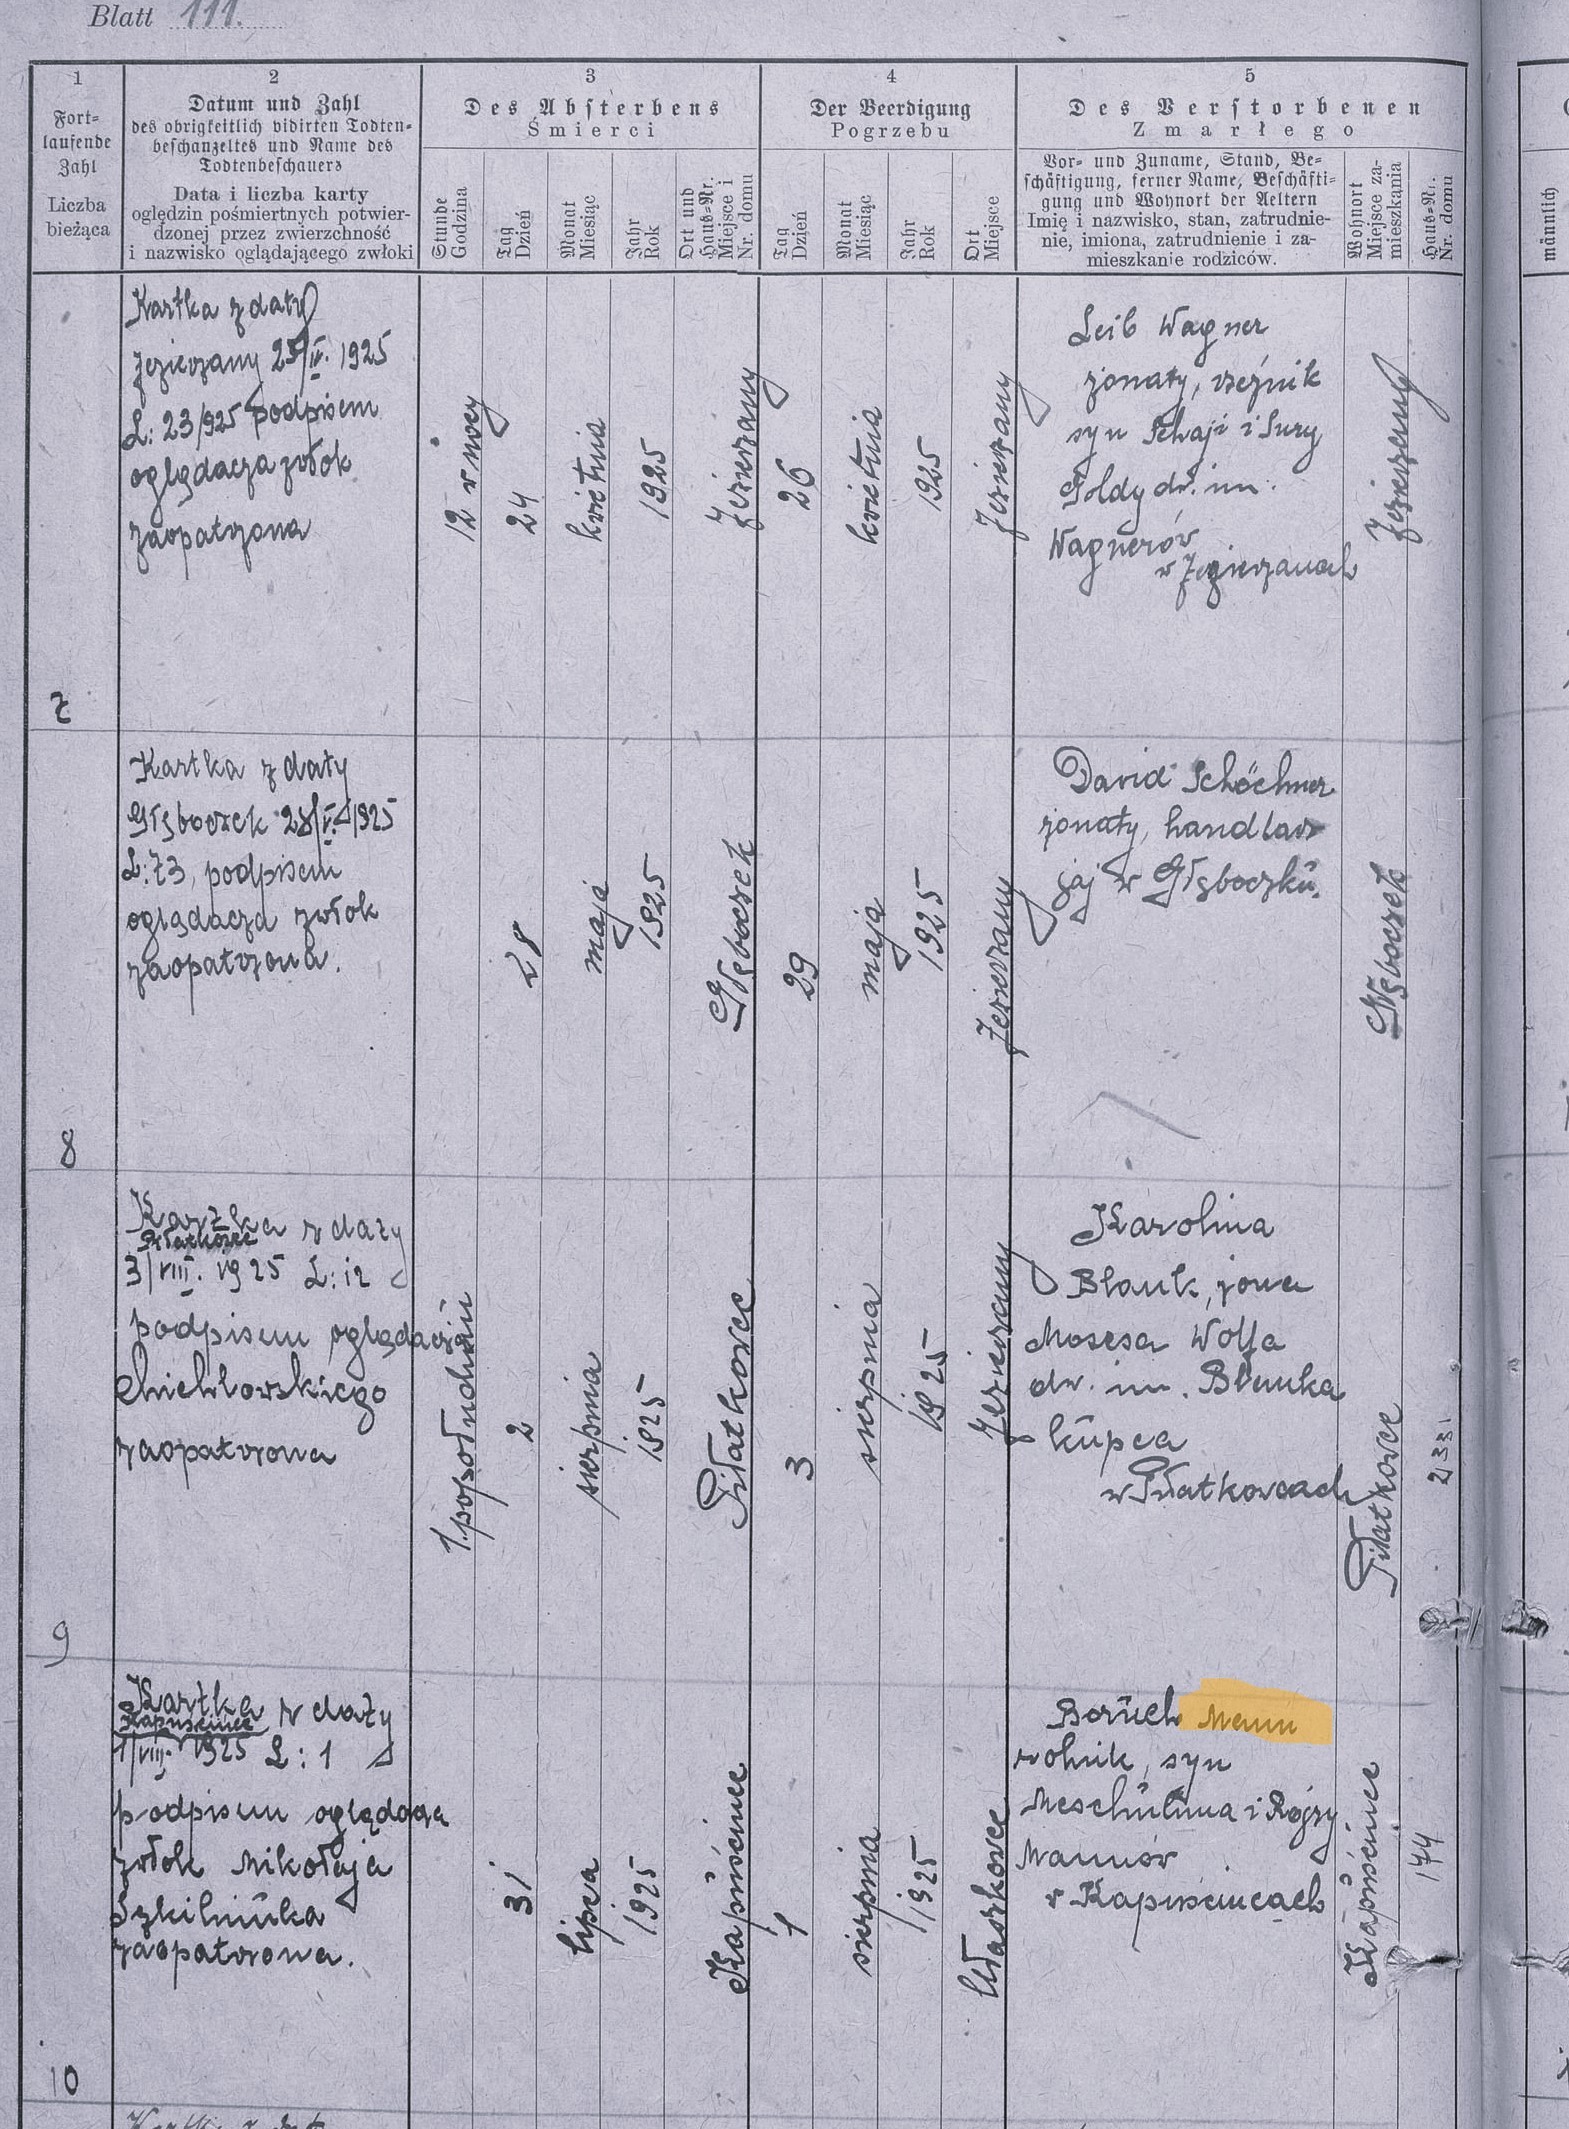 Blatt 111.
1
Fort-
laufende
Zahl
Liczba
bieżąca
2
Datum und Zahl
des obrigkeitlich vidirten Todten-
beschauzettels und Name des
Todtenbeschauers
Data i liczba karty
oględzin pośmiertnych potwier-
dzonej przez zwierzchność
i nazwisko oglądającego zwłoki
3
Des Absterbens
Śmierci
Stunde
Godzina
Tag
Dzień
Monat
Miesiąc
Jahr
Rok
Ort und
Haus-Nr.
Miejsce i
Nr. domu
4
Der Beerdigung
Pogrzebu
Tag
Dzień
Monat
Miesiąc
Jahr
Rok
Ort
Miejsce
5
Des Verstorbenen
Zmarłego
Vor- und Zuname, Stand, Be-
schäftigung, ferner Name, Beschäfti-
gung und Wohnort der Aeltern
Imię i nazwisko, stan, zatrudnie-
nie, imiona, zatrudnienie i za-
mieszkanie rodziców.
Wohnort
Miejsce za-
mieszkania
Haus-Nr.
Nr. domu
männlich
7
Kartka z daty
Jezierzany 25/IV. 1925
L: 23/925 podpisem
oglądacza zwłok
zaopatrzona
12 w nocy
24
kwietnia
1925
Jezierzany
26
kwietnia
1925
Jezierzany
Leib Wagner
żonaty, rzeźnik
syn Schaji i Sury
Goldy dw. im.
Wagnerów
w Jezierzanach
Jezierzany
8
Kartka z daty
Głęboczek 28/V. 1925
L: 73, podpisem
oglądacza zwłok
zaopatrzona.
28
maja
1925
Głęboczek
29
maja
1925
Jezierzany
David Schöchner
żonaty, handlarz
jaj w Głęboczku.
Głęboczek
9
Kartka z daty
Piłatkowce
3/VIII. 1925 L: 12
podpisem oglądacza
zaopatrzona
1. popołudniu
2
sierpnia
1925
Piłatkowce
3
sierpnia
1925
Jezierzany
Karolina
Blank, żona
Mosesa Wolfa
dw. im. Blanka
kupca
w Piłatkowcach
Piłatkowce
233
10
Kartka z daty
Kapuścińce
1/VIII. 1925 L: 1
podpisem oglądacza
zwłok Mikołaja
Szkilniuka
zaopatrzona.
31
lipca
1925
Kapuścińce
1
sierpnia
1925
Ułaszkowce
Boruch Mann
rolnik, syn
Meschulima i Rojzy
Mannów
w Kapuścińcach
Kapuścińce
174